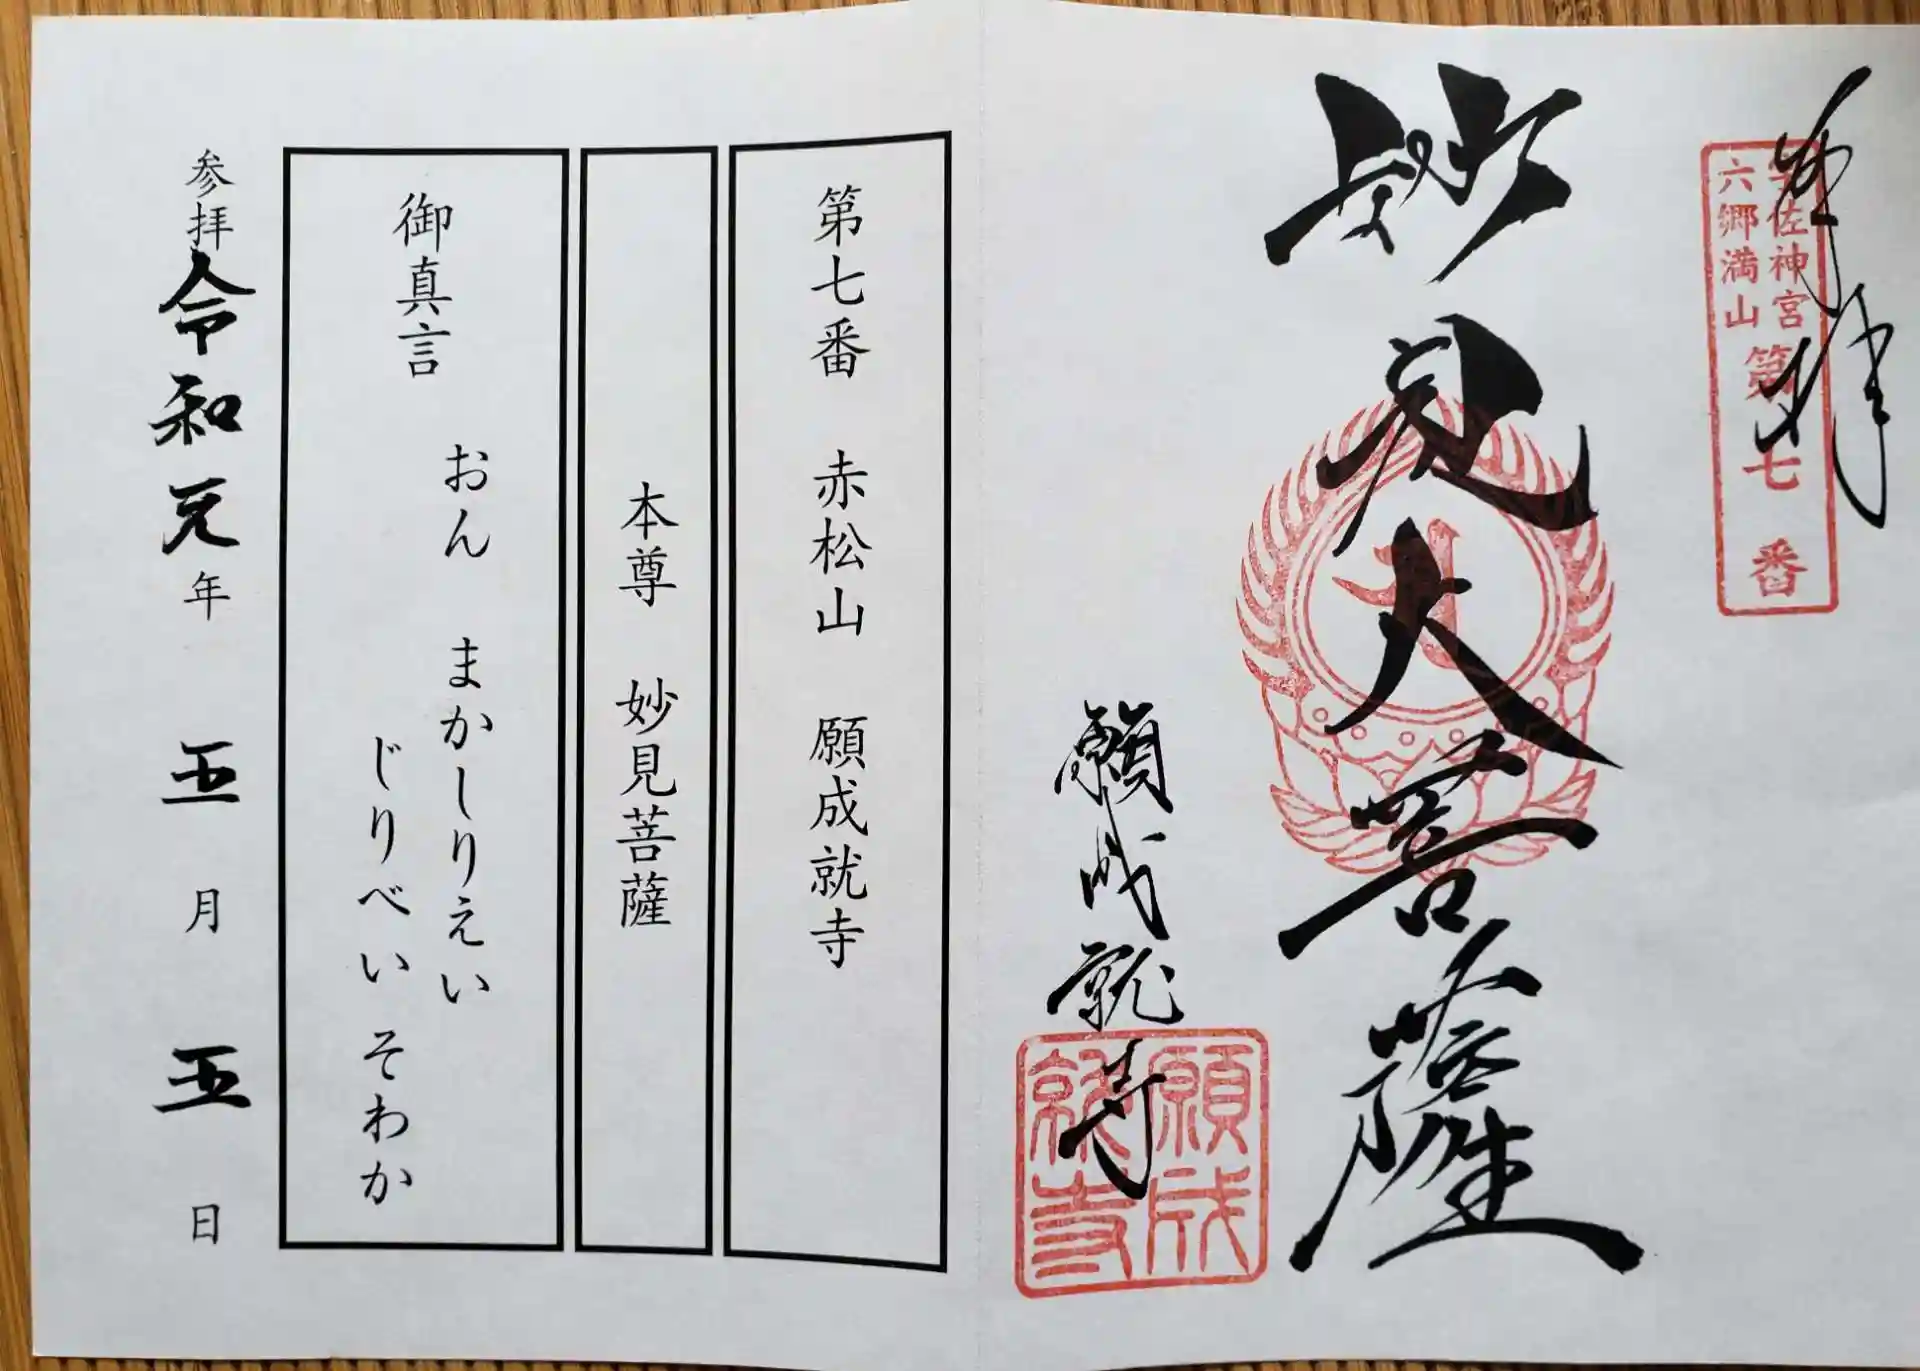 奉拝
宇佐神宮
六郷満山
第七番
妙見大菩薩
願成就寺
願成
就寺
第七番 赤松山 願成就寺
本尊 妙見菩薩
御真言
おん まかしりえい
じりべい そわか
参拝 令和元年 五月 五日